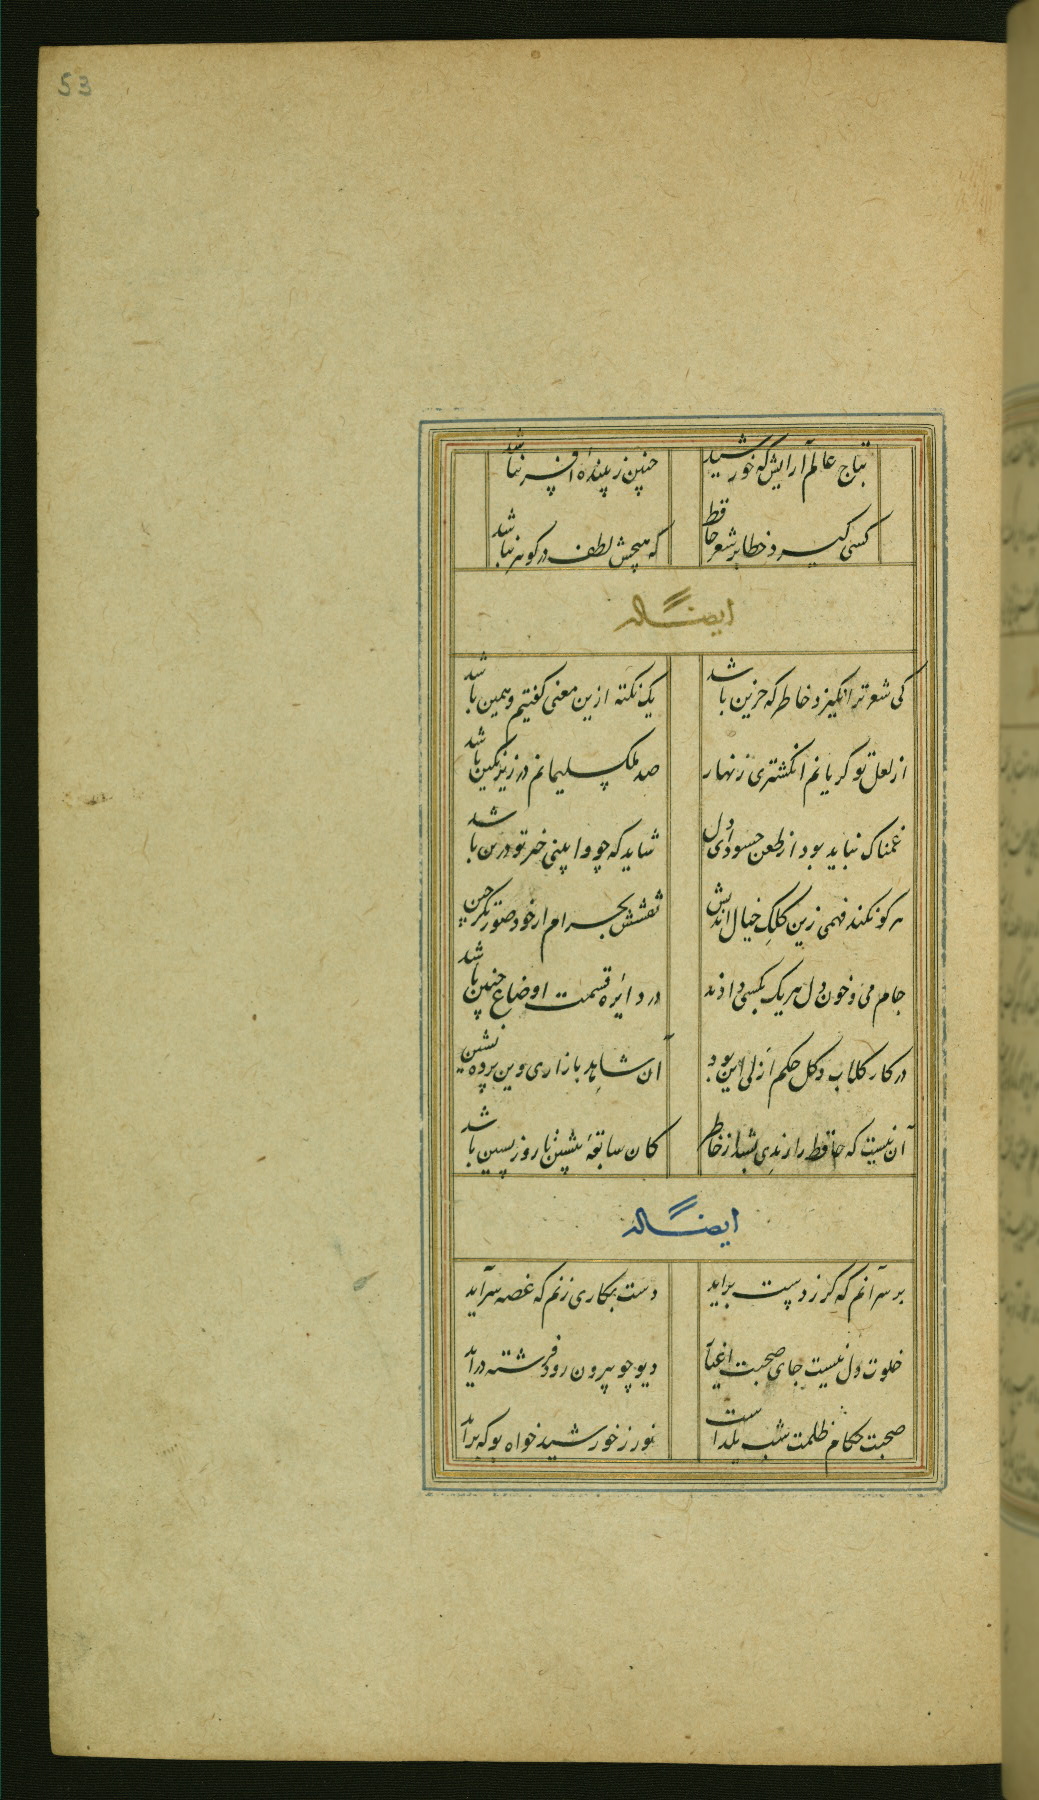 53
بتاج عالم آرایش که خورشید چنین زیبندهٔ افسر نباشد
کسی گیرد خطا بر شعر حافظ که هیچش لطف در گوهر نباشد
ایضاً له
کی شعر تر انگیزد خاطر که حزین باشد یک نکته ازین معنی گفتیم و همین باشد
از لعل تو گر یابم انگشتری زنهار صد ملک سلیمانم در زیر نگین باشد
غمناک نباید بود از طعن حسود ای دل شاید که چو وابینی خیر تو درین باشد
هر کو نکند فهمی زین کلک خیال اندیش نقشش بحرام ار خود صورتگر چین
جام می و خون دل هر یک بکسی دادند در دایرهٔ قسمت اوضاع چنین باشد
در کار گلاب و گل حکم ازلی این بود آن شاهد بازاری وین پرده نشین
آن نیست که حافظ را رندی بشد از خاطر کان سابقهٔ پیشین تا روز پسین باشد
ایضاً له
بر سر آنم که گر ز دست برآید دست بکاری زنم که غصه سرآید
خلوت دل نیست جای صحبت اغیار دیو چو بیرون رود فرشته درآید
صحبت حکام ظلمت شب یلداست نور ز خورشید خواه بو که برآید